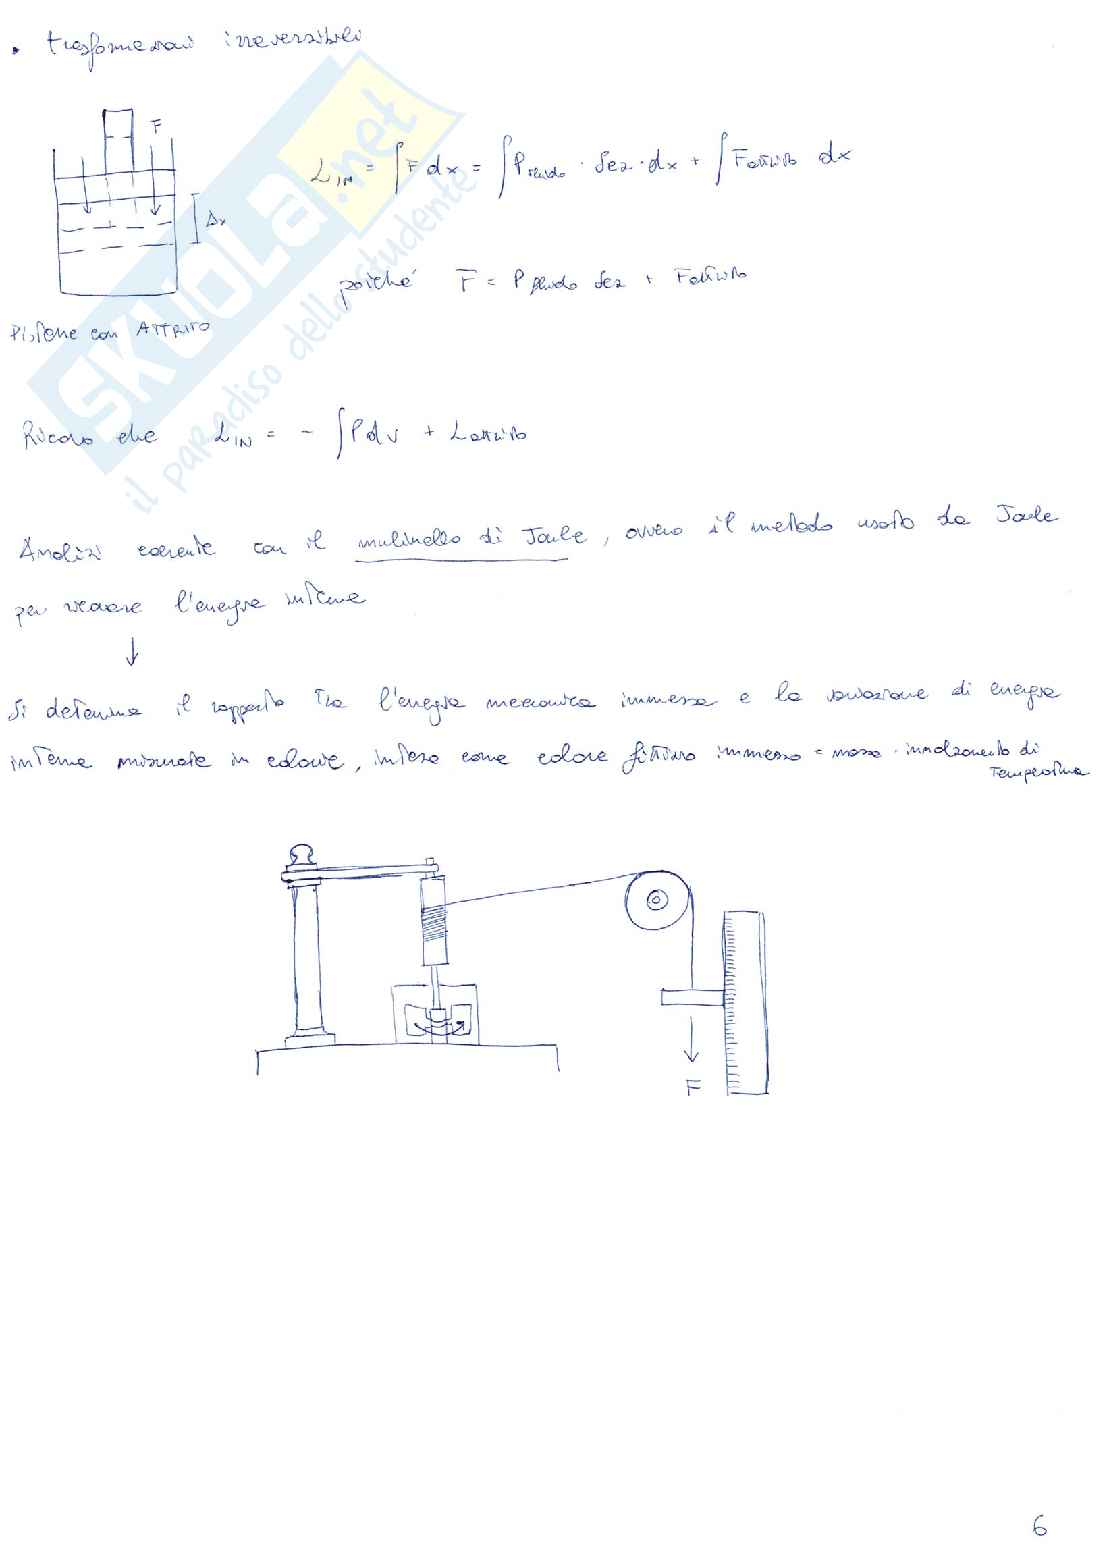 • trasformazioni irreversibili
F
L_IN = ∫ F dx = ∫ P fluido · Sez · dx + ∫ F attrito dx
Δx
poiché F = P fluido Sez + F attrito
Pistone con ATTRITO
Ricavo che L_IN = - ∫ P dv + L attrito
Analisi coerente con il mulinello di Joule, ovvero il metodo usato da Joule
per vedere l'energia interna
↓
Si determina il rapporto tra l'energia meccanica immessa e la variazione di energia
interna misurata in calorie, intesa come calore fittizio immesso = massa · innalzamento di
Temperatura
F
6
SKUOLA.net
il paradiso dello studente